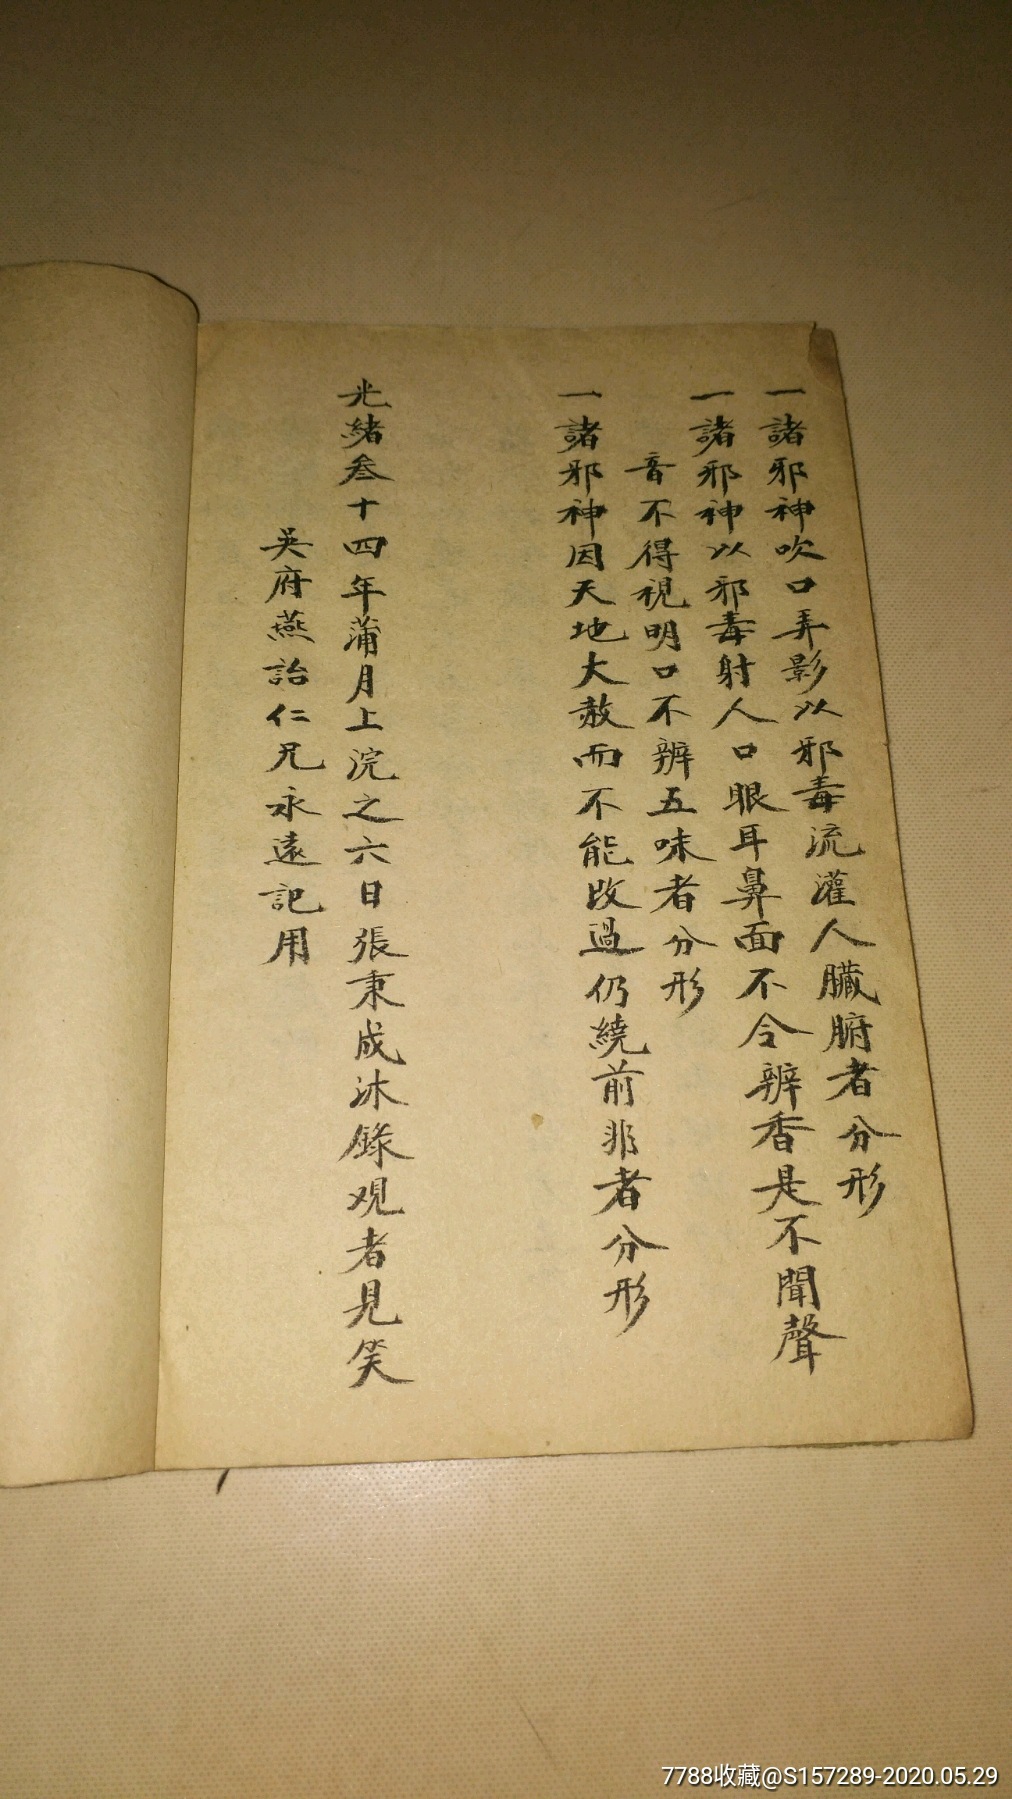 一諸邪神吹口弄影以邪毒流灌人臟腑者分形
一諸邪神以邪毒射人口眼耳鼻面不令辨香是不聞聲
音不得視明口不辨五味者分形
一諸邪神因天地大赦而不能改過仍繞前非者分形
光緒叁十四年蒲月上浣之六日張秉成沐錄观者見笑
吳府燕詒仁兄永遠記用
7788收藏@S157289-2020.05.29